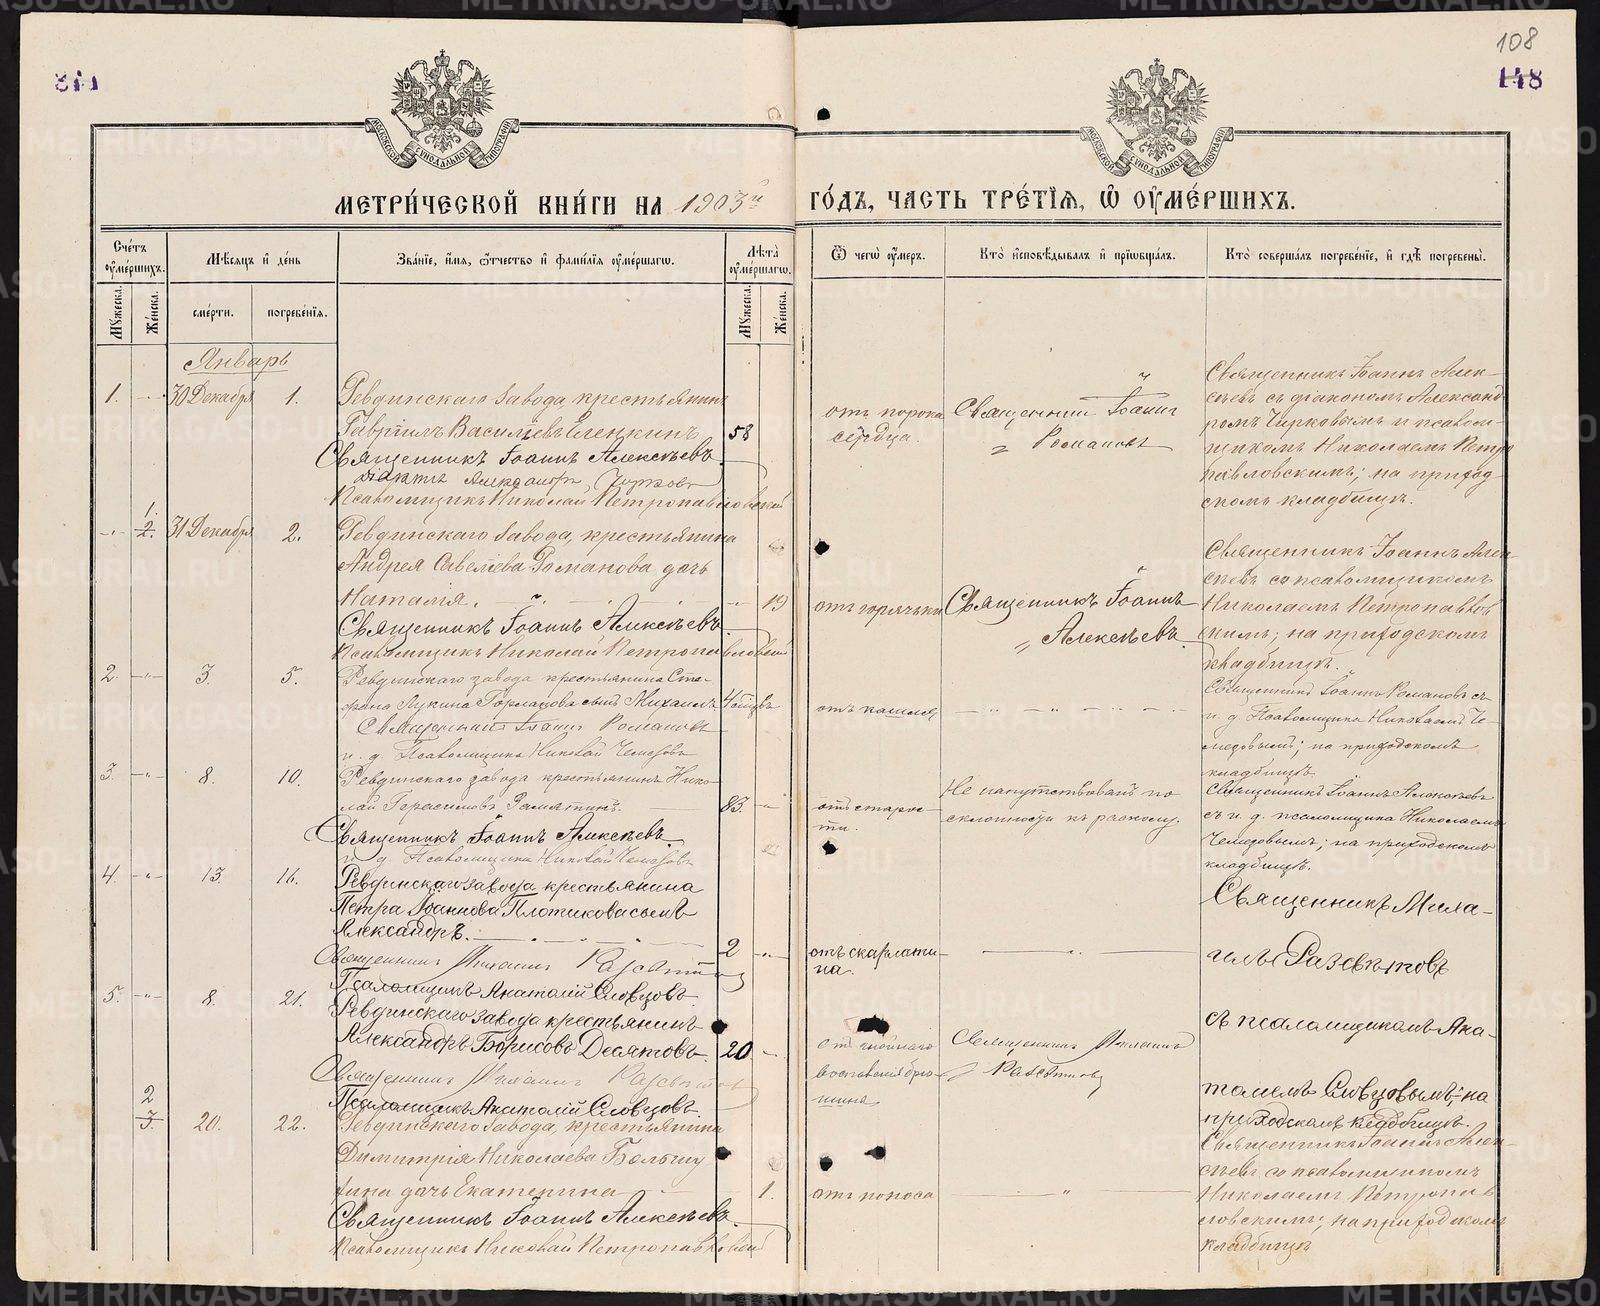 108
148
МОСКОВСКОЙ СѴНОДАЛЬНОЙ ТИПОГРАФІИ
МОСКОВСКОЙ СѴНОДАЛЬНОЙ ТИПОГРАФІИ
МЕТРИ́ЧЕСКОЙ КНИ́ГИ НА 1903й ГО́ДЪ, ЧАСТЬ ТРЕ́ТІѦ, Ѿ ОУМЕ́РШИХЪ.
Сче́тъ оумершихъ.
Мꙋжеска.
Же́нска.
Мѣ́сѧцъ и де́нь
сме́рти.
погребе́нїѧ.
Зва́нїе, и́мѧ, ѻтчество и фами́лїѧ оумершагѡ.
Лѣта̀ оумершагѡ.
Мꙋжеска.
Же́нска.
Ѿ чегѡ̀ оумеръ.
Кто̀ и́сповѣ́дывалъ и прїѡбща́лъ.
Кто̀ соверша́лъ погребе́нїе, и гдѣ̀ погребены̀.
Январь
1. 30 Декабря 1.
Ревдинскаго Завода крестьянинъ
Гавріилъ Василіевъ Еленкинъ 58
Священникъ Іоаннъ Алексѣевъ
Діаконъ Александръ Чирковъ
Псаломщикъ Николай Петропавловскій
отъ порока
сердца.
Священникъ Іоаннъ
Романовъ
Священникъ Іоаннъ Алек-
сѣевъ съ діакономъ Александ-
ромъ Чирковымъ и псалом-
щикомъ Николаемъ Петро
павловскимъ; на приход
скомъ кладбищѣ.
1.
2. 31 Декабря 2.
Ревдинскаго Завода, крестьянина
Андрея Савеліева Романова дочь
Наталія. 19
Священникъ Іоаннъ Алексѣевъ.
Псаломщикъ Николай Петропавловскій
отъ горячьки
Священникъ Іоаннъ
Алексѣевъ.
Священникъ Іоаннъ Алек-
сѣевъ со псаломщикомъ
Николаемъ Петропавлов
скимъ; на приходскомъ
кладбищѣ.
2. 3. 5.
Ревдинскаго завода крестьянина Сте-
фана Лукина сынъ Михаилъ
Священникъ Іоаннъ Романовъ
и. д. Псаломщика Николай Чемезовъ
отъ кашля
Священникъ Іоаннъ Романовъ съ
и. д. Псаломщика Николаемъ Че-
мезовымъ; на приходскомъ
кладбищѣ.
3. 8. 10.
Ревдинскаго завода крестьянинъ Нико-
лай Герасимовъ Замятинъ. 83.
Священникъ Іоаннъ Алексѣевъ.
и. д. Псаломщика Николай Чемезовъ
отъ старос-
ти.
Не напутствованъ по
склонности къ расколу.
Священникъ Іоаннъ Алексѣевъ
съ и. д. псаломщика Николаемъ
Чемезовымъ; на приходскомъ
кладбищѣ.
4. 13. 16.
Ревдинскаго завода крестьянина
Петра Іоаннова Плотникова сынъ
Александръ. 2
Священникъ Михаилъ Разсвѣтовъ
Псаломщикъ Анатолій Словцовъ.
отъ скарлати-
на.
Священникъ Миха-
илъ Разсвѣтовъ
5. 8. 21.
Ревдинскаго завода крестьянинъ
Александръ Борисовъ Десятовъ. 20
Священникъ Михаилъ Разсвѣтовъ
Псаломщикъ Анатолій Словцовъ.
Священникъ Михаилъ
Разсвѣтовъ
съ псаломщикомъ Ана-
толіемъ Словцовымъ; на
приходскомъ кладбищѣ.
2
3. 20. 22.
Ревдинскаго Завода, крестьянина
Димитрія Николаева
дочь Екатерина 1.
Священникъ Іоаннъ Алексѣевъ.
Псаломщикъ Николай Петропавловскій
отъ поноса
Священникъ Іоаннъ Алек-
сѣевъ со псаломщикомъ
Николаемъ Петропав
ловскимъ; на приходскомъ
кладбищѣ
METRIKI.GASO-URAL.RU